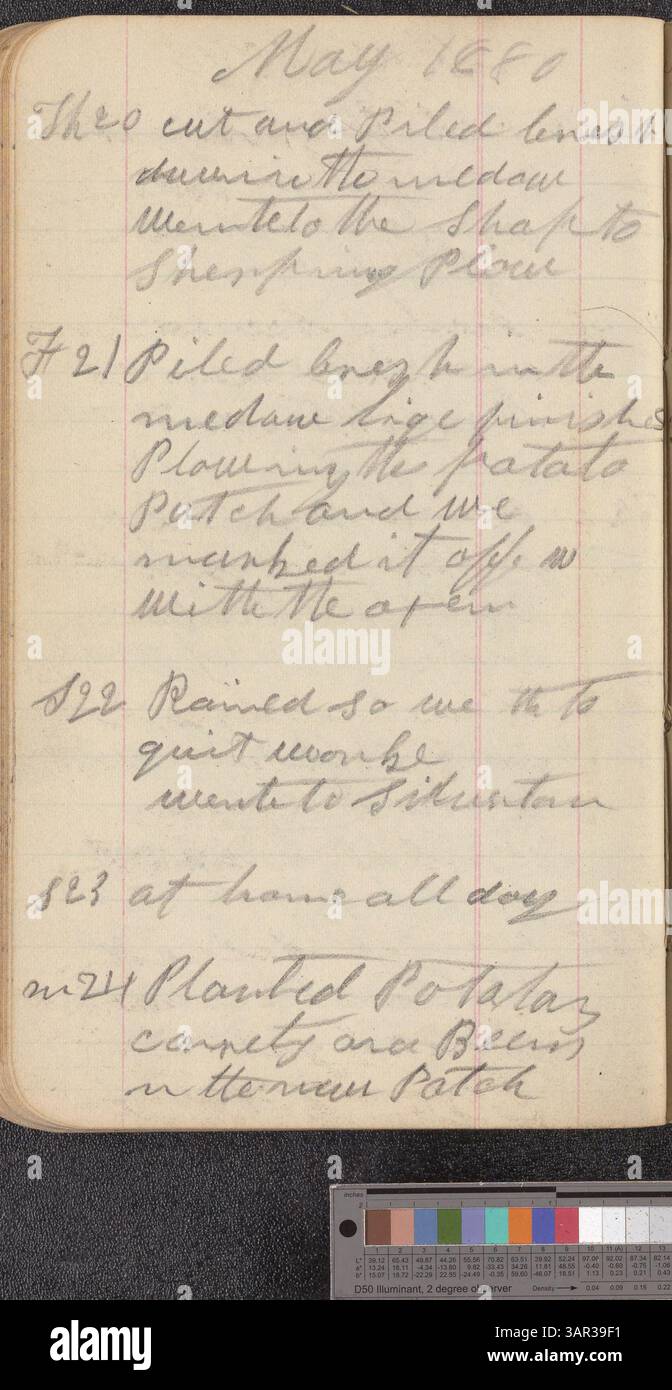 May 1880
Th 20 cut and Piled brush
down in the medow
wente to the Shap to
Sherping Plow
F 21 Piled brush in the
medow lige finishe
Plowing the patato
Patch and we
marked it off w
With the oxen
S 22 Rained so we to
quit worke
wente to Silvertan
S 23 at home all day
m 24 Planted Potatas
carrets and Beens
in the new Patch
alamy
a
inches
1 2 3 4 5 6 7 8 9 10 11 (A) 12 13
L* 39.12 65.43 49.87 44.26 55.56 70.82 63.51 39.92 52.24 97.06 92.02 87.34 82.14
a* 13.24 18.11 -4.34 -13.80 9.82 -33.43 34.26 11.81 48.55 -0.40 -0.60 -0.75 -1.06
b* 15.07 18.72 -22.29 22.85 -24.49 -0.35 59.60 -46.07 18.51 1.13 0.23 0.21 0.43
D50 Illuminant, 2 degree observer
Density 0.04 0.09 0.15 0.22
alamy
Image ID: 3AR39F1
www.alamy.com